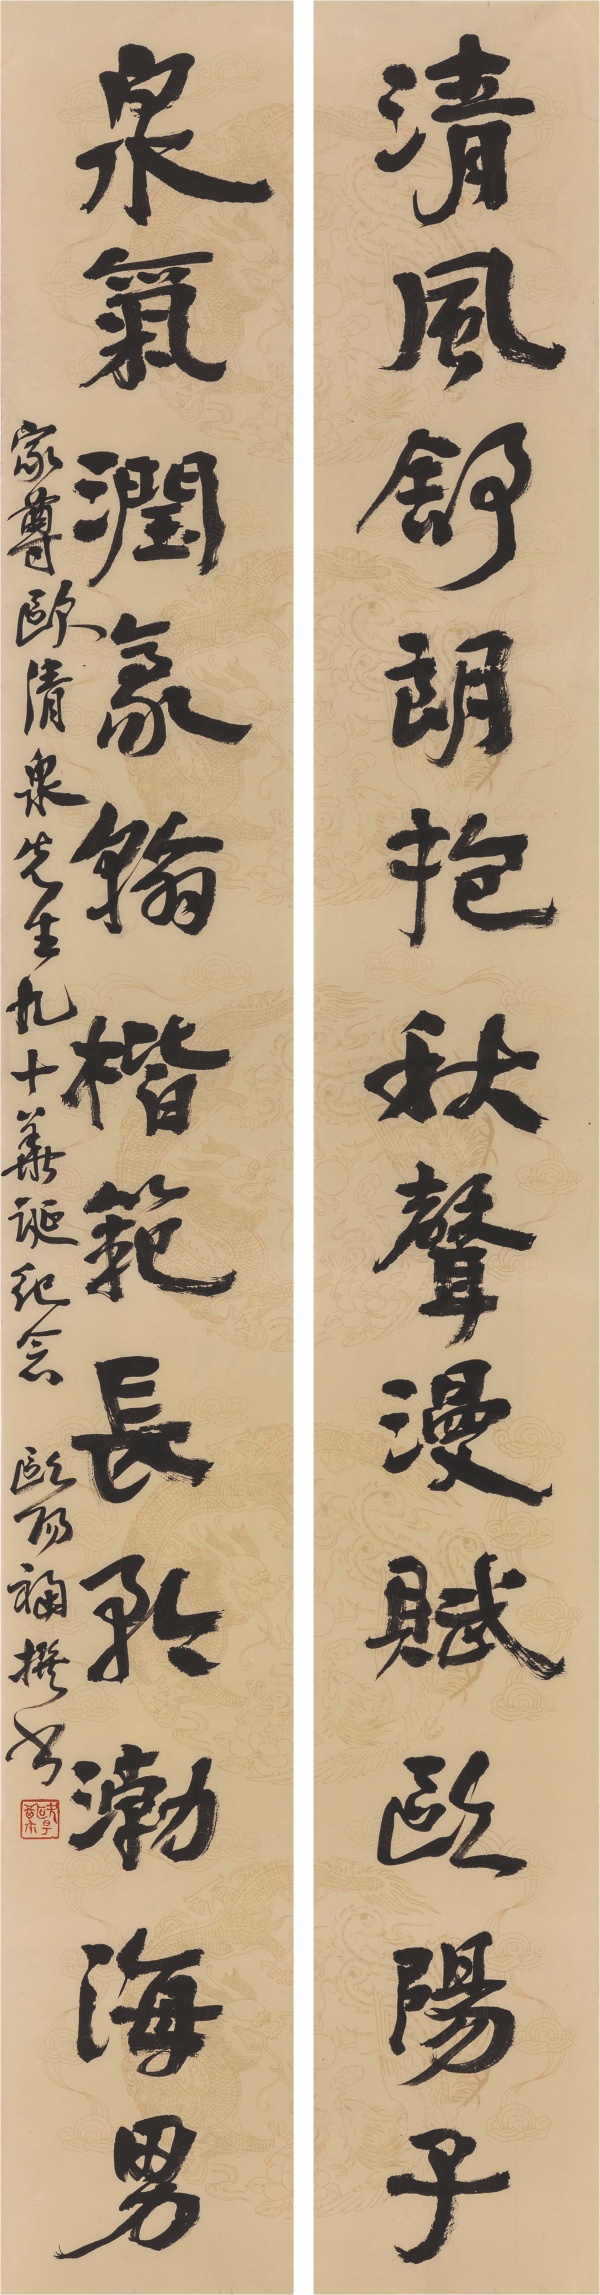 清風舒朗抱秋聲漫賦歐陽子
泉氣潤豪翰楷範長欽渤海男
家尊歐清泉先生九十華誕紀念 歐陽禰撰書